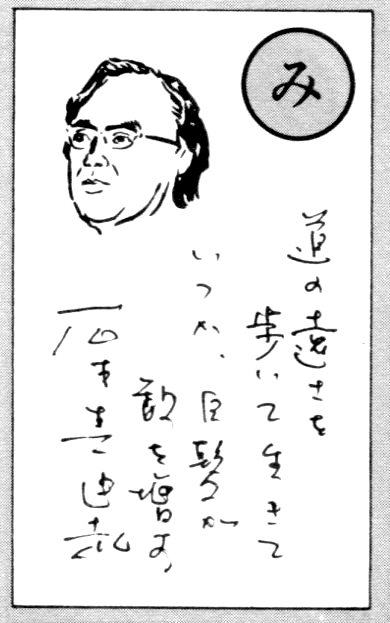 み
道の遠さを
歩いて生きて
いつか、白髪が
数を増す、
石本美由起